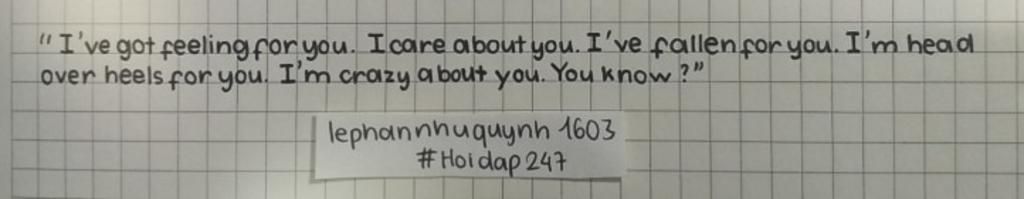 "I've got feeling for you. I care about you. I've fallen for you. I'm head
over heels for you. I'm crazy about you. You know?"
lephannhuquynh 1603
#Hoidap247